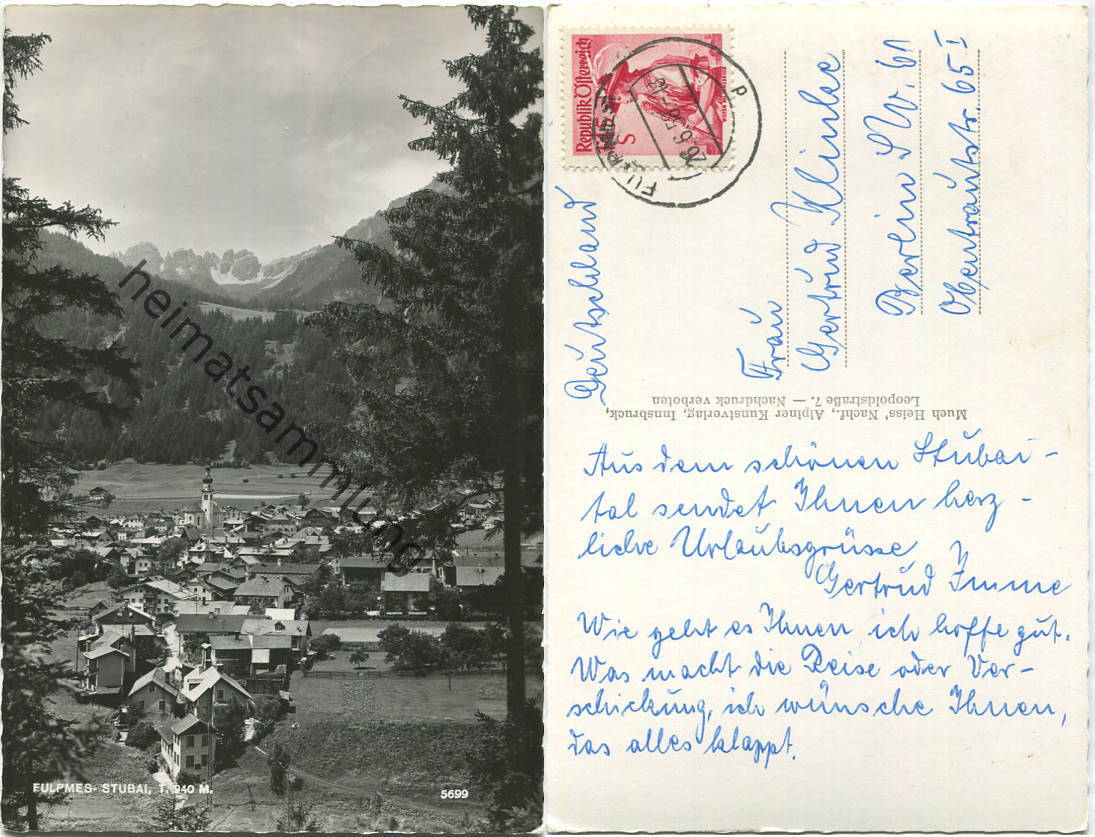 heimatsammlung
FULPMES - STUBAI, T. 940 M.
5699
Republik Österreich
S
FULPMES
Deutschland
Frau
Gertrud Klinke
Berlin SW. 61
Obentrautstr. 65 I
Much Heiss' Nachf., Alpiner Kunstverlag, Innsbruck,
Leopoldstraße 7. — Nachdruck verboten
Aus dem schönen Stubai-
tal sendet Ihnen herz-
liche Urlaubsgrüsse
Gertrud Imme
Wie geht es Ihnen, ich hoffe gut.
Was macht die Reise oder Ver-
schickung, ich wünsche Ihnen,
das alles klappt.